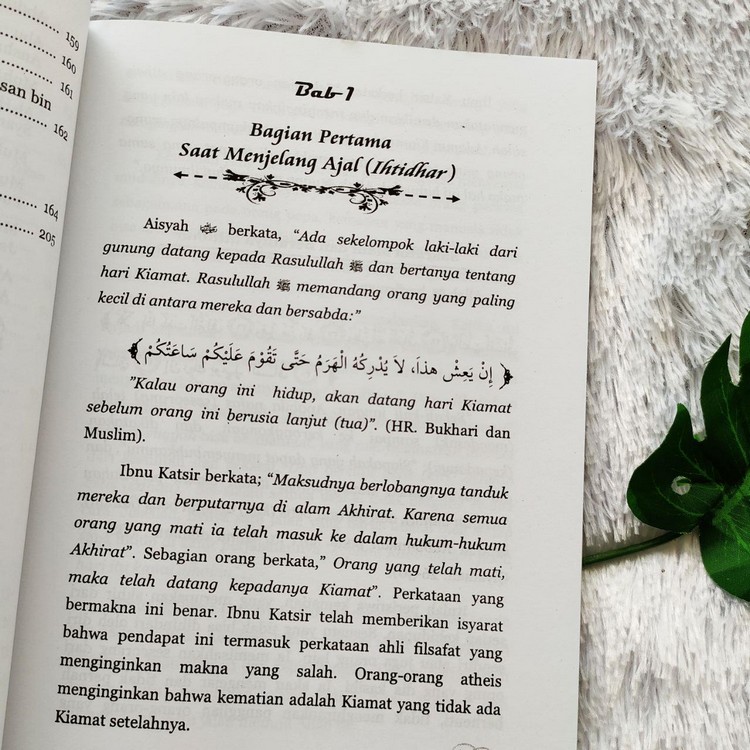 159
160
161
san bin
162
164
205
Bab 1
Bagian Pertama
Saat Menjelang Ajal (Ihtidhar)
Aisyah berkata, “Ada sekelompok laki-laki dari
gunung datang kepada Rasulullah ﷺ dan bertanya tentang
hari Kiamat. Rasulullah ﷺ memandang orang yang paling
kecil di antara mereka dan bersabda:”
﴿ إِنْ يَعِشْ هذَا، لاَ يُدْرِكُهُ الْهَرَمُ حَتَّى تَقُوْمَ عَلَيْكُمْ سَاعَتُكُمْ ﴾
”Kalau orang ini hidup, akan datang hari Kiamat
sebelum orang ini berusia lanjut (tua)”. (HR. Bukhari dan
Muslim).
Ibnu Katsir berkata; “Maksudnya berlobangnya tanduk
mereka dan berputarnya di alam Akhirat. Karena semua
orang yang mati ia telah masuk ke dalam hukum-hukum
Akhirat”. Sebagian orang berkata,” Orang yang telah mati,
maka telah datang kepadanya Kiamat”. Perkataan yang
bermakna ini benar. Ibnu Katsir telah memberikan isyarat
bahwa pendapat ini termasuk perkataan ahli filsafat yang
menginginkan makna yang salah. Orang-orang atheis
menginginkan bahwa kematian adalah Kiamat yang tidak ada
Kiamat setelahnya.